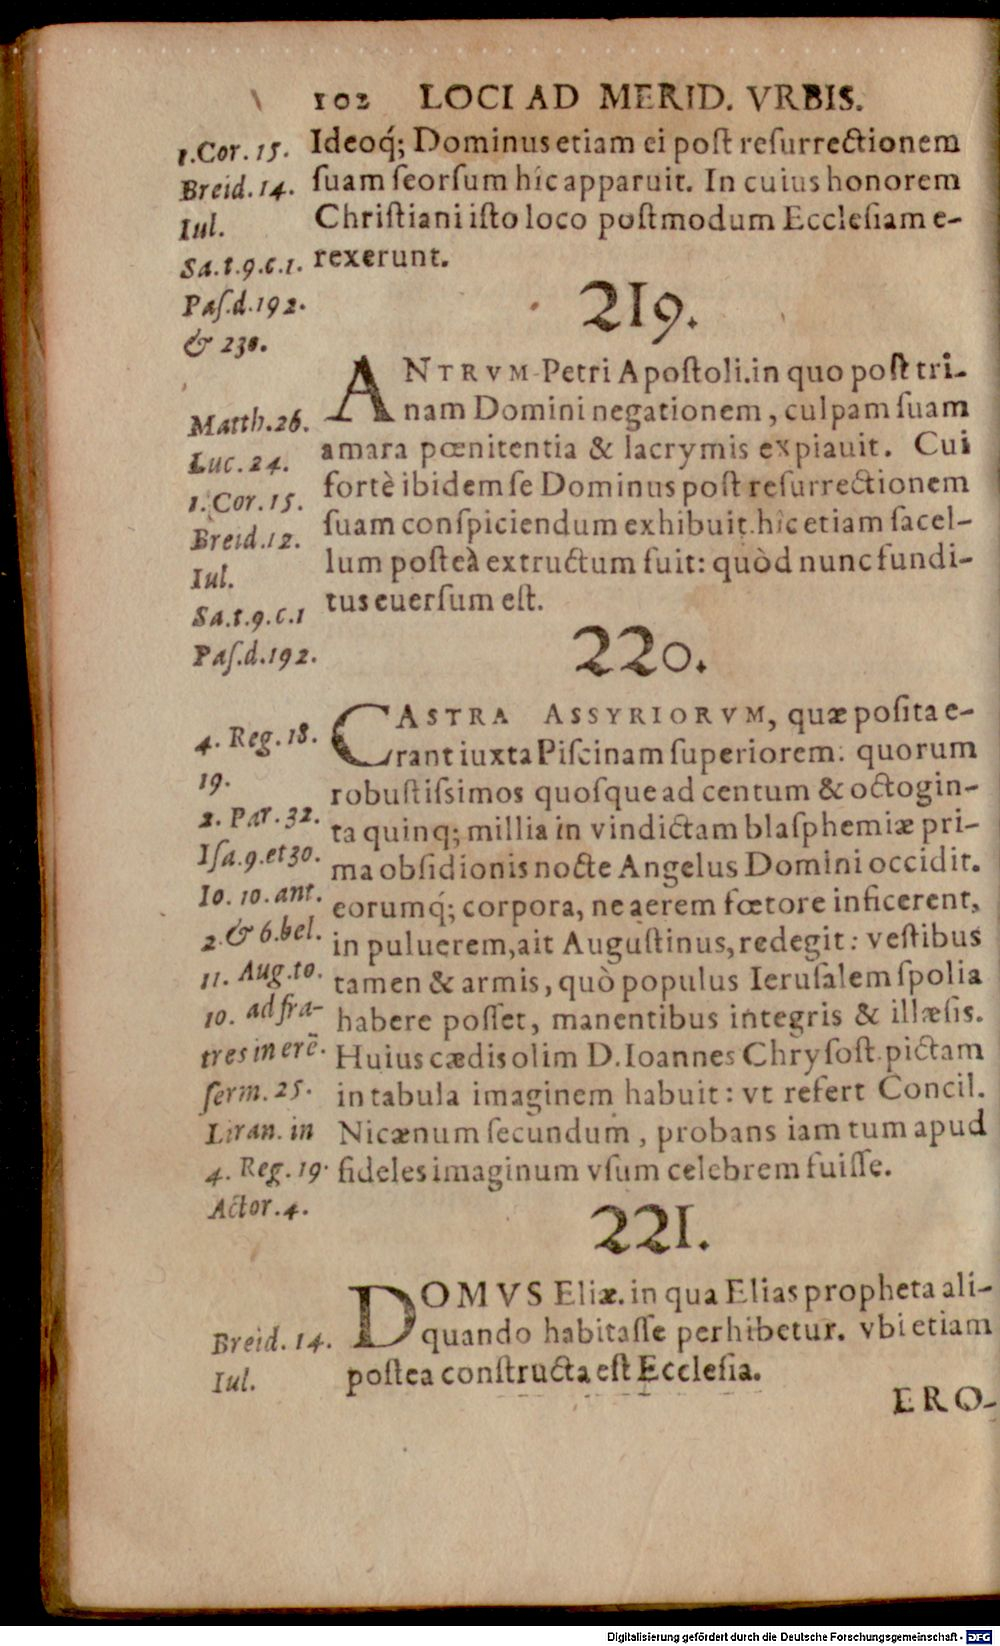 102 LOCI AD MERID. VRBIS.
1.Cor. 15.
Breid. 14.
Iul.
Sa.t.9.c.1.
Paſ.d.192.
& 238.
Ideoq́; Dominus etiam ei poſt reſurrectionem
ſuam ſeorſum hîc apparuit. In cuius honorem
Chriſtiani iſto loco poſtmodum Eccleſiam e-
rexerunt.
219.
Matth.26.
Luc. 24.
1. Cor. 15.
Breid.12.
Iul.
Sa.t.9.c.1
Paſ.d.192.
ANTRVM Petri Apoſtoli.in quo poſt tri-
nam Domini negationem, culpam ſuam
amara pœnitentia & lacrymis expiauit. Cui
fortè ibidem ſe Dominus poſt reſurrectionem
ſuam conſpiciendum exhibuit. hîc etiam ſacel-
lum poſteà extructum fuit: quòd nunc fundi-
tus euerſum eſt.
220.
4. Reg. 18.
19.
2. Par. 32.
Iſa.9.et30.
Io. 10. ant.
2.& 6.bel.
11. Aug.to.
10. ad fra-
tres in erē.
ſerm. 25.
Liran. in
4. Reg. 19.
Actor. 4.
CASTRA ASSYRIORVM, quæ poſita e-
rant iuxta Piſcinam ſuperiorem. quorum
robuſtiſsimos quoſque ad centum & octogin-
ta quinq; millia in vindictam blaſphemiæ pri-
ma obſidionis nocte Angelus Domini occidit.
eorumq́; corpora, ne aerem fœtore inficerent,
in puluerem, ait Auguſtinus, redegit: veſtibus
tamen & armis, quò populus Ieruſalem ſpolia
habere poſſet, manentibus integris & illæſis.
Huius cædis olim D. Ioannes Chryſoſt. pictam
in tabula imaginem habuit: vt refert Concil.
Nicænum ſecundum, probans iam tum apud
fideles imaginum vſum celebrem fuiſſe.
221.
Breid. 14.
Iul.
DOMVS Eliæ. in qua Elias propheta ali-
quando habitaſſe perhibetur. vbi etiam
postea conſtructa eſt Eccleſia.
ERO-
Digitalisierung gefördert durch die Deutsche Forschungsgemeinschaft - DFG